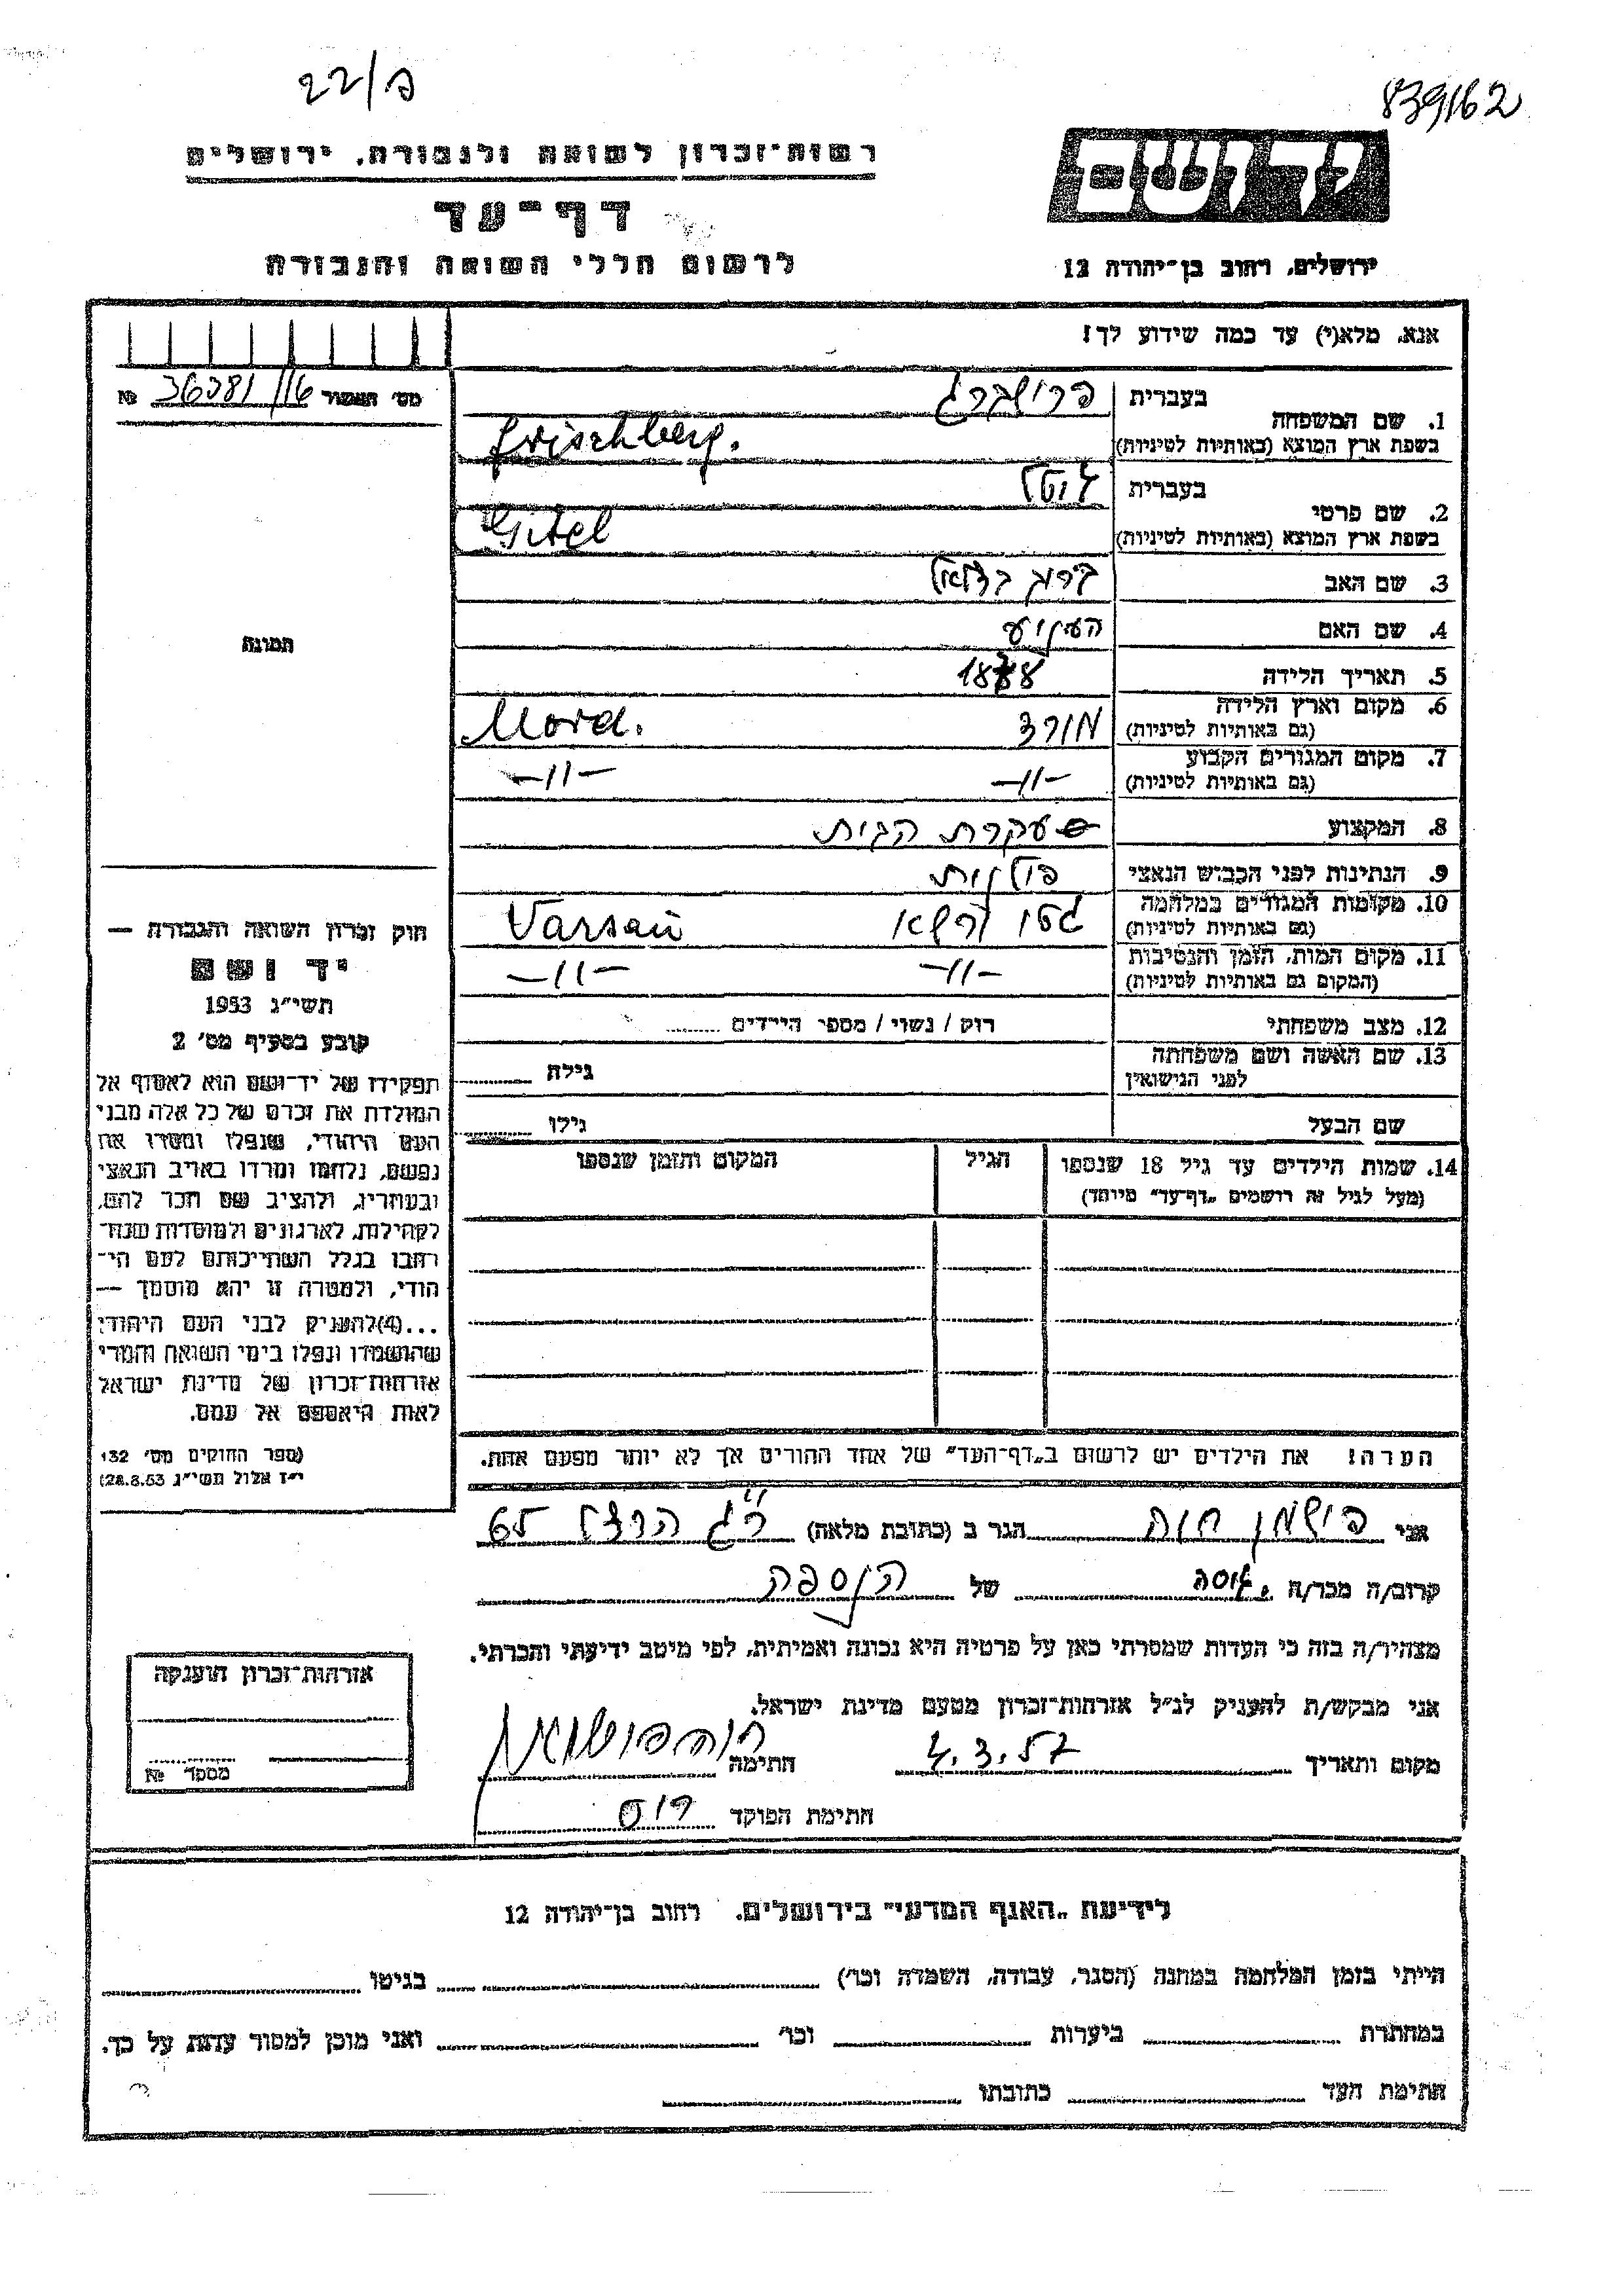 22/פ
839162
רשות-זכרון לשואה ולגבורה, ירושלים
יד ושם
דף-עד
לרשום חללי השואה והגבורה
ירושלים, רחוב בן-יהודה 12
אנא, מלא(י) עד כמה שידוע לך!
מס' השאור 36381/116 №
1. שם המשפחה
בעברית פרישברג
בשפת ארץ המוצא (באותיות לטיניות) Frischberg.
2. שם פרטי
בעברית גיטל
בשפת ארץ המוצא (באותיות לטיניות) Gitel
3. שם האב ברוך בצלאל
4. שם האם
5. תאריך הלידה 1878
6. מקום וארץ הלידה
(גם באותיות לטיניות) מורד Mord.
7. מקום המגורים הקבוע
(גם באותיות לטיניות) -11- -11-
8. המקצוע עקרת הבית
9. הנתינות לפני הכבוש הנאצי פולנית
10. מקומות המגורים במלחמה
(גם באותיות לטיניות) גטו ורשא Varsau
11. מקום המות, הזמן והנסיבות
(המקום גם באותיות לטיניות) -11- -11-
12. מצב משפחתי רוק / נשוי / מספר הילדים
13. שם האשה ושם משפחתה
לפני הנישואין גילה
שם הבעל גילו
14. שמות הילדים עד גיל 18 שנספו הגיל המקום והזמן שנספו
(מעל לגיל זה רושמים „דף-עד" מיוחד)
תמונה
חוק זכרון השואה והגבורה —
יד ושם
תשי"ג 1953
קובע בסעיף מס' 2
תפקידו של יד-ושם הוא לאסוף אל
המולדת את זכרם של כל אלה מבני
העם היהודי, שנפלו ומסרו את
נפשם, נלחמו ומרדו באויב הנאצי
ובעוזריו, ולהציב שם וזכר להם,
לקהילות, לארגונים ולמוסדות שנח-
רבו בגלל השתייכותם לעם הי-
הודי, ולמטרה זו יהא מוסמך —
...(4)להעניק לבני העם היהודי
שהושמדו ונפלו בימי השואה והמרי
אזרחות-זכרון של מדינת ישראל
לאות היאספם אל עמם.
(ספר החוקים מס' 132
י"ז אלול תשי"ג 28.8.53)
הערה! את הילדים יש לרשום ב„דף-העד" של אחד ההורים אך לא יותר מפעם אחת.
אני פישמן חוה הגר ב (כתובת מלאה) ר"ג הרצל 65
קרוב/ה מכר/ה גיסה של הנספה
מצהיר/ה בזה כי העדות שמסרתי כאן על פרטיה היא נכונה ואמיתית, לפי מיטב ידיעתי והכרתי.
אני מבקש/ת להעניק לנ"ל אזרחות-זכרון מטעם מדינת ישראל.
מקום ותאריך 4.3.57 חתימה
חתימת הפוקד
אזרחות-זכרון הוענקה
מספר №
לידיעת „האגף המדעי" בירושלים, רחוב בן-יהודה 12
הייתי בזמן המלחמה במחנה (הסגר, עבודה, השמדה וכו') בגיטו
במחתרת ביערות וכו' ואני מוכן למסור עדות על כך.
חתימת העד כתובתו